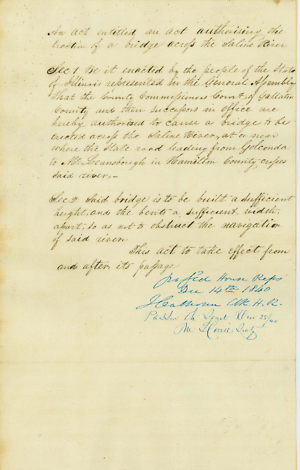 An act entitled an act authorising the
erection of a bridge across the Saline River
Sec 1 Be it enacted by the people of the State
of Illinois represented in the General Assembly
That the County Commissioners Court of Gallatin
County, and their successors in office are
hereby authorised to cause a bridge to be
erected across the Saline River, at or near
where the State road leading from Golconda
to McLeansborough in Hamilton County crosses
said river.—
Sec 2 Said bridge is to be built a sufficient
height, and the bents a sufficient width
apart, so as not to obstruct the navigation
of said river
This act to take effect from
and after its passage
Passed House Reps
Dec 14th 1840
J Calhoun Clk H.R.